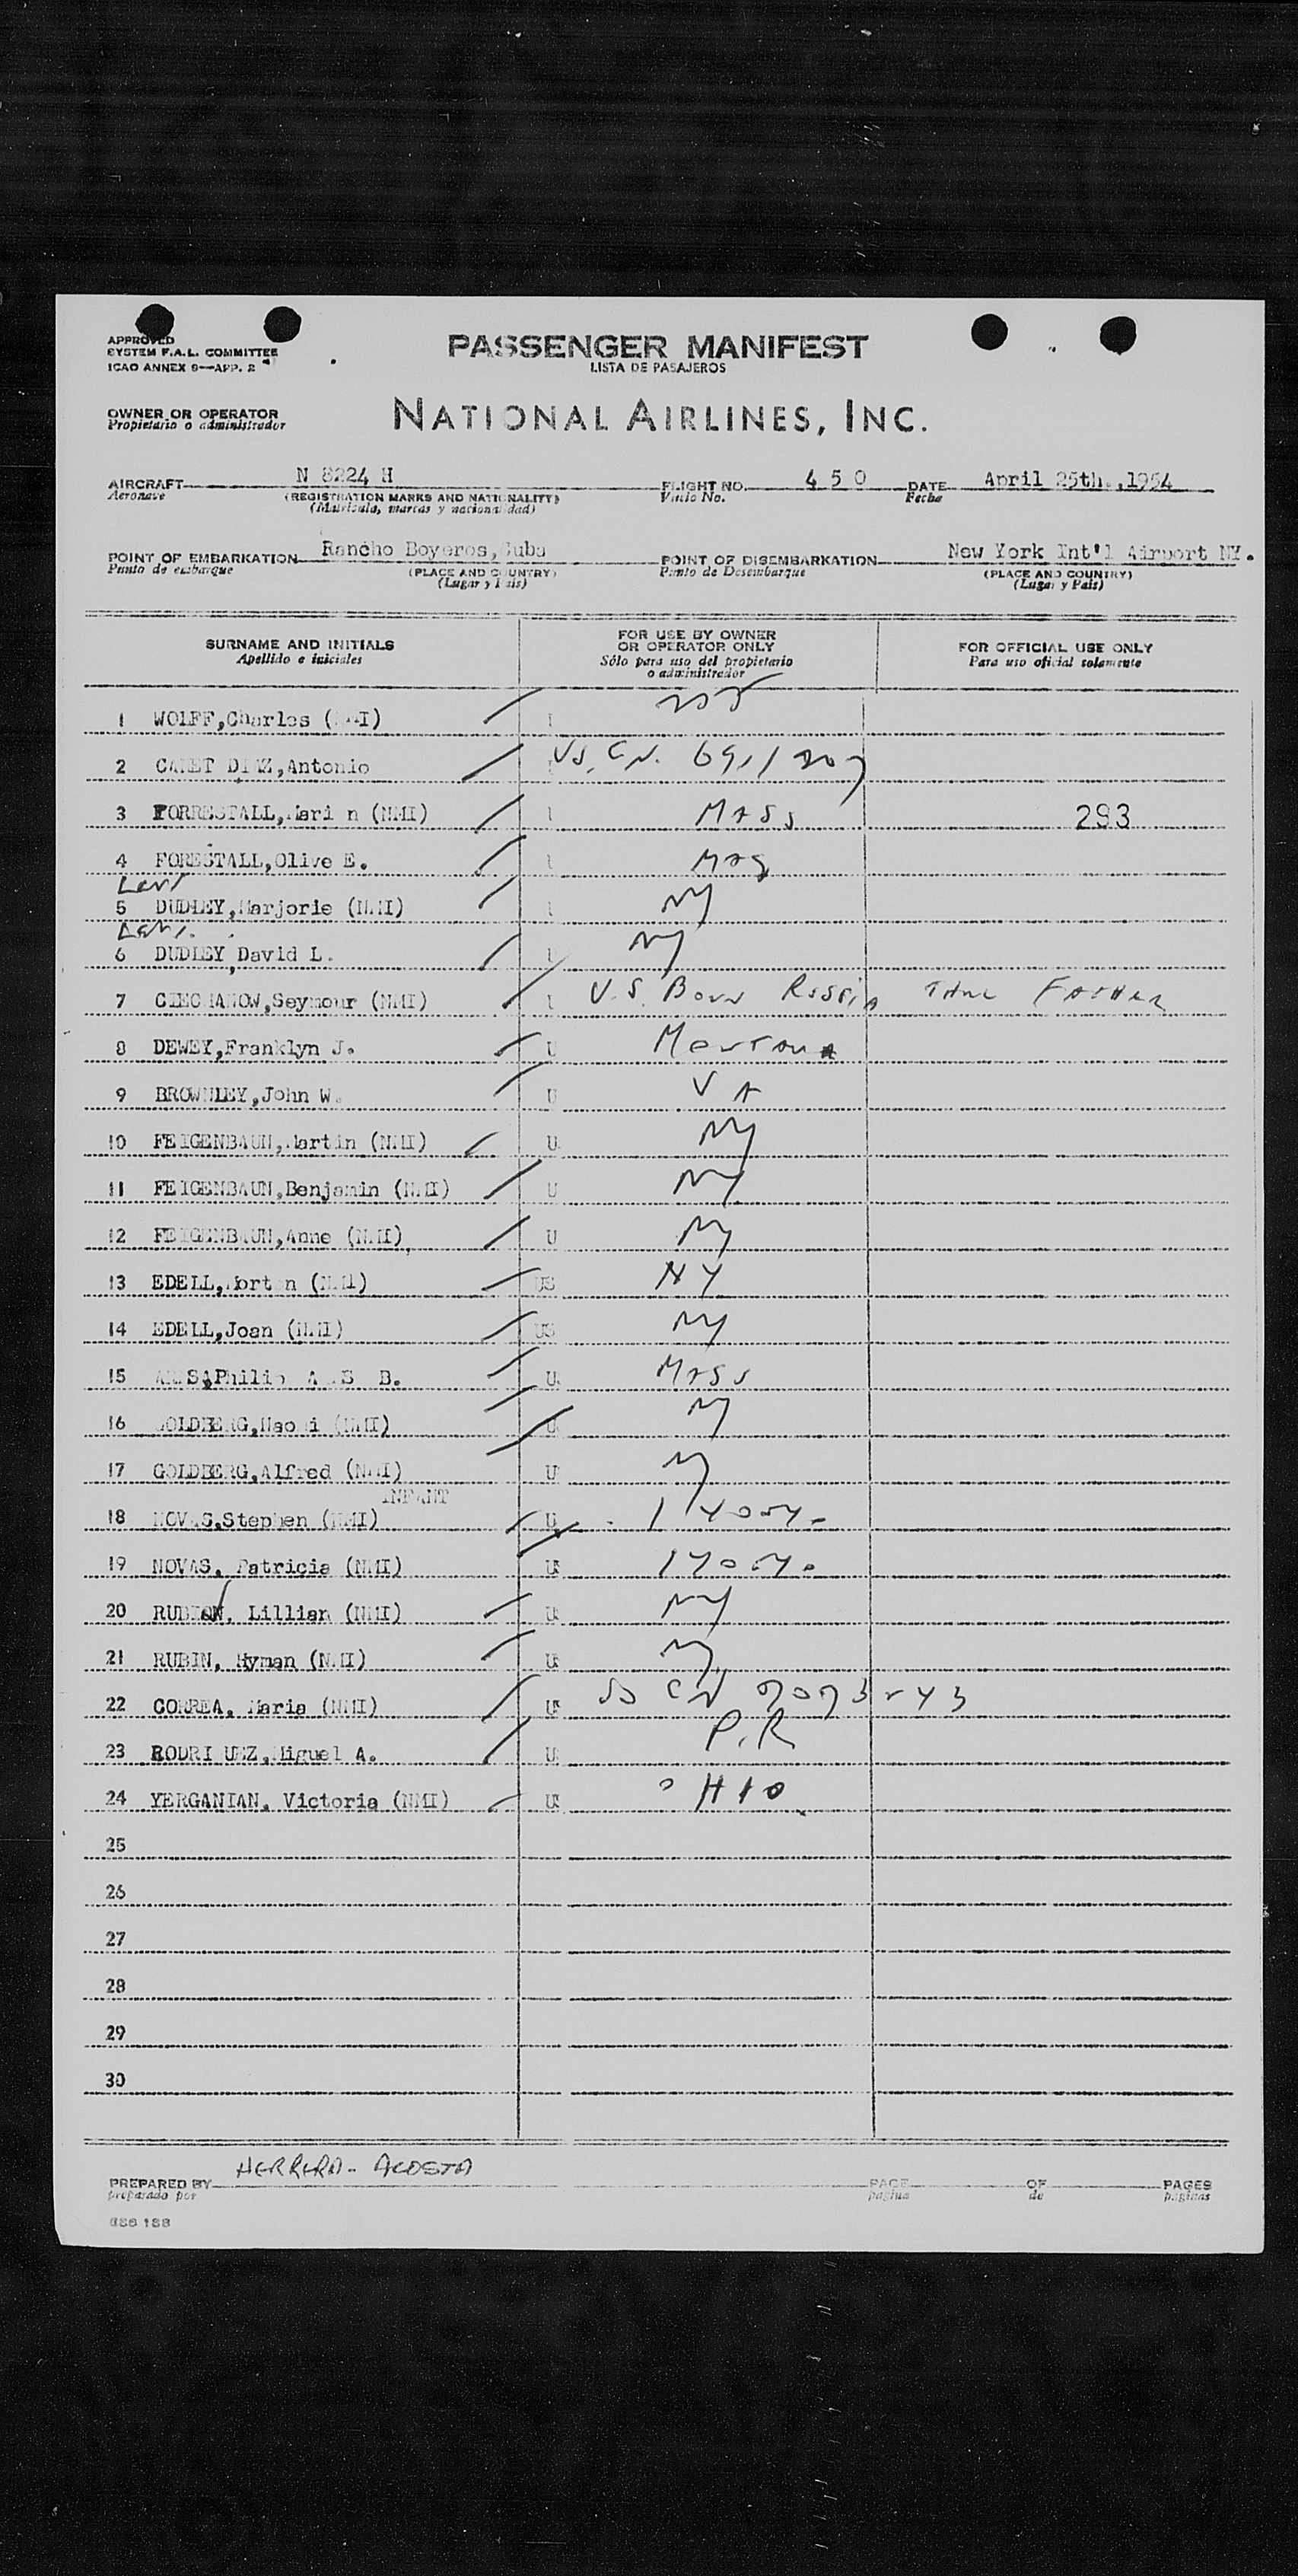 APPROVED
SYSTEM F.A.L. COMMITTEE
ICAO ANNEX 9—APP. 2
PASSENGER MANIFEST
LISTA DE PASAJEROS
OWNER OR OPERATOR
Propietario o administrador
NATIONAL AIRLINES, INC.
AIRCRAFT N 8224 H FLIGHT NO. 4 5 0 DATE April 25th.,1954
Aeronave (REGISTRATION MARKS AND NATIONALITY) Vuelo No. Fecha
(Matrícula, marcas y nacionalidad)
POINT OF EMBARKATION Rancho Boyeros, Cuba POINT OF DISEMBARKATION New York Int'l Airport NY.
Punto de embarque (PLACE AND COUNTRY) Punto de Desembarque (PLACE AND COUNTRY)
(Lugar y País) (Lugar y País)
SURNAME AND INITIALS FOR USE BY OWNER OR OPERATOR ONLY FOR OFFICIAL USE ONLY
Apellido e iniciales Sólo para uso del propietario o administrador Para uso oficial solamente
1 WOLFF,Charles (NMI)
2 DIAZ,Antonio
3 FORRESTALL, (NMI) MASS 293
4 FORESTALL,Olive E. MAS
5 DUDLEY,Marjorie (NMI) NY
6 DUDLEY,David L. NY
7 CIECHANOW,Seymour (NMI) U.S. BORN RUSSIA THRU FATHER
8 DEWEY,Franklyn J. U MONTANA
9 BROWNLEY,John W. U VA
10 FEIGENBAUN,Martin (NMI) U NY
11 FEIGENBAUN,Benjamin (NMI) U NY
12 FEIGENBAUN,Anne (NMI) U NY
13 EDELL,Morton (NMI) US NY
14 EDELL,Joan (NMI) US NY
15 U MASS
16 GOLDBERG,Naomi (NMI) U NY
17 GOLDBERG,Alfred (NMI) U NY
INFANT
18 NOVAS,Stephen (NMI) U
19 NOVAS, Patricia (NMI) U
20 Lillian (NMI) U NY
21 RUBIN, Hyman (NMI) U NY
22 CORREA, Maria (NMI) U
23 RODRIGUEZ,Miguel A. U P.R
24 YERGANIAN, Victoria (NMI) U OHIO
25
26
27
28
29
30
PREPARED BY HERRERA- ACOSTA PAGE OF PAGES
preparado por pagina de páginas